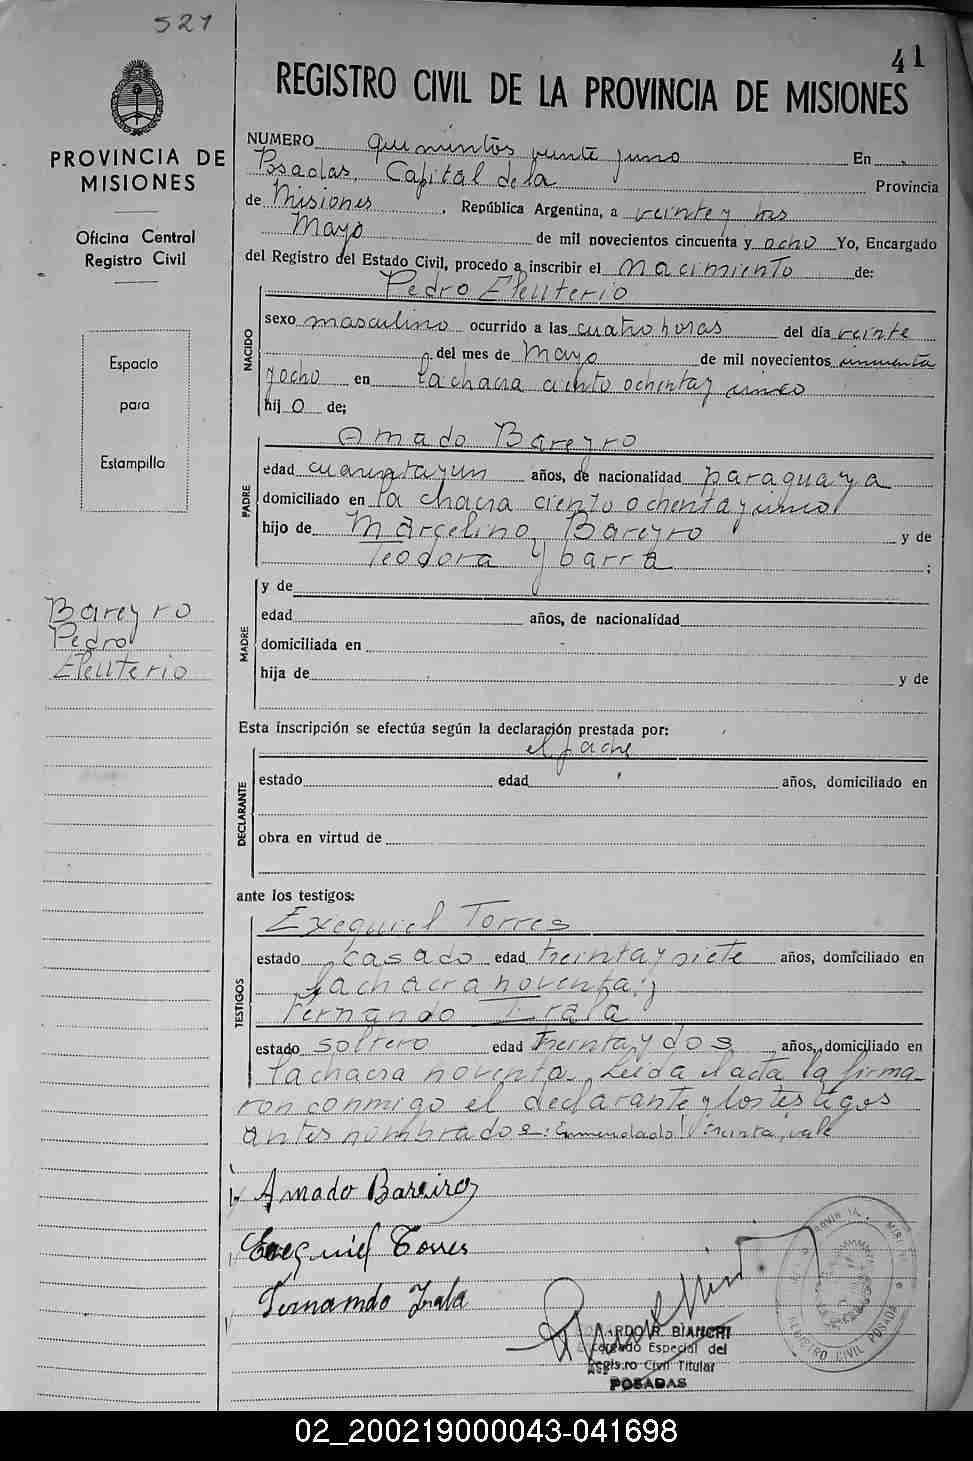 521
41
REGISTRO CIVIL DE LA PROVINCIA DE MISIONES
PROVINCIA DE
MISIONES
Oficina Central
Registro Civil
Espacio
para
Estampilla
Bareyro
Pedro
Eleuterio
NUMERO quinientos veinte y uno En
Posadas, Capital de la Provincia
de Misiones, República Argentina, a veinte y tres
Mayo de mil novecientos cincuenta y ocho Yo, Encargado
del Registro del Estado Civil, procedo a inscribir el nacimiento de:
Pedro Eleuterio
NACIDO
sexo masculino ocurrido a las cuatro horas del día veinte
del mes de Mayo de mil novecientos cincuenta
y ocho en la chacra ciento ochenta y cinco
hijo de;
Amado Bareyro
PADRE
edad cuarenta y un años, de nacionalidad paraguaya
domiciliado en la chacra ciento ochenta y cinco
hijo de Marcelino Bareyro y de
Teodora Ybarra ;
MADRE
y de
edad años, de nacionalidad
domiciliada en
hija de y de
Esta inscripción se efectúa según la declaración prestada por:
el padre
DECLARANTE
estado edad años, domiciliado en
obra en virtud de
ante los testigos:
Exequiel Torres
TESTIGOS
estado casado edad treinta y siete años, domiciliado en
la chacra noventa; y
Fernando Irala
estado soltero edad treinta y dos años, domiciliado en
la chacra noventa. Leida el acta la firma-
ron conmigo el declarante y los testigos
antes nombrados: Enmendado: vale
Amado Bareiro
Exequiel Torres
Fernando Irala
ARDO R. BIANCHI
Encargado Especial del
Registro Civil Titular
POSADAS
REGISTRO CIVIL POSADAS
02_200219000043-041698